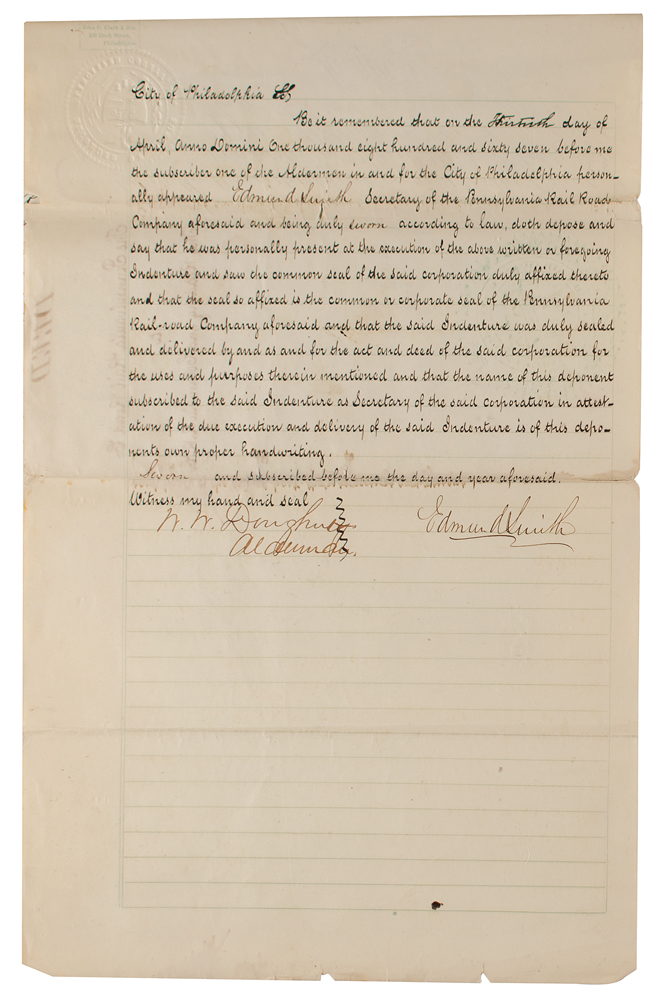 City of Philadelphia SS
Be it remembered that on the day of
April, Anno Domini One thousand eight hundred and sixty seven before me
the subscriber one of the Aldermen in and for the City of Philadelphia person-
ally appeared Edmund Smith Secretary of the Pennsylvania Rail Road
Company aforesaid and being duly sworn according to law, doth depose and
say that he was personally present at the execution of the above written or foregoing
Indenture and saw the common seal of the said corporation duly affixed thereto
and that the seal so affixed is the common or corporate seal of the Pennsylvania
Rail-road Company aforesaid and that the said Indenture was duly sealed
and delivered by and as and for the act and deed of the said corporation for
the uses and purposes therein mentioned and that the name of this deponent
subscribed to the said Indenture as Secretary of the said corporation in attest-
ation of the due execution and delivery of the said Indenture is of this depo-
nents own proper handwriting.
Sworn and subscribed before me the day and year aforesaid.
Witness my hand and seal
W. W. Dougherty Edmund Smith
Alderman.